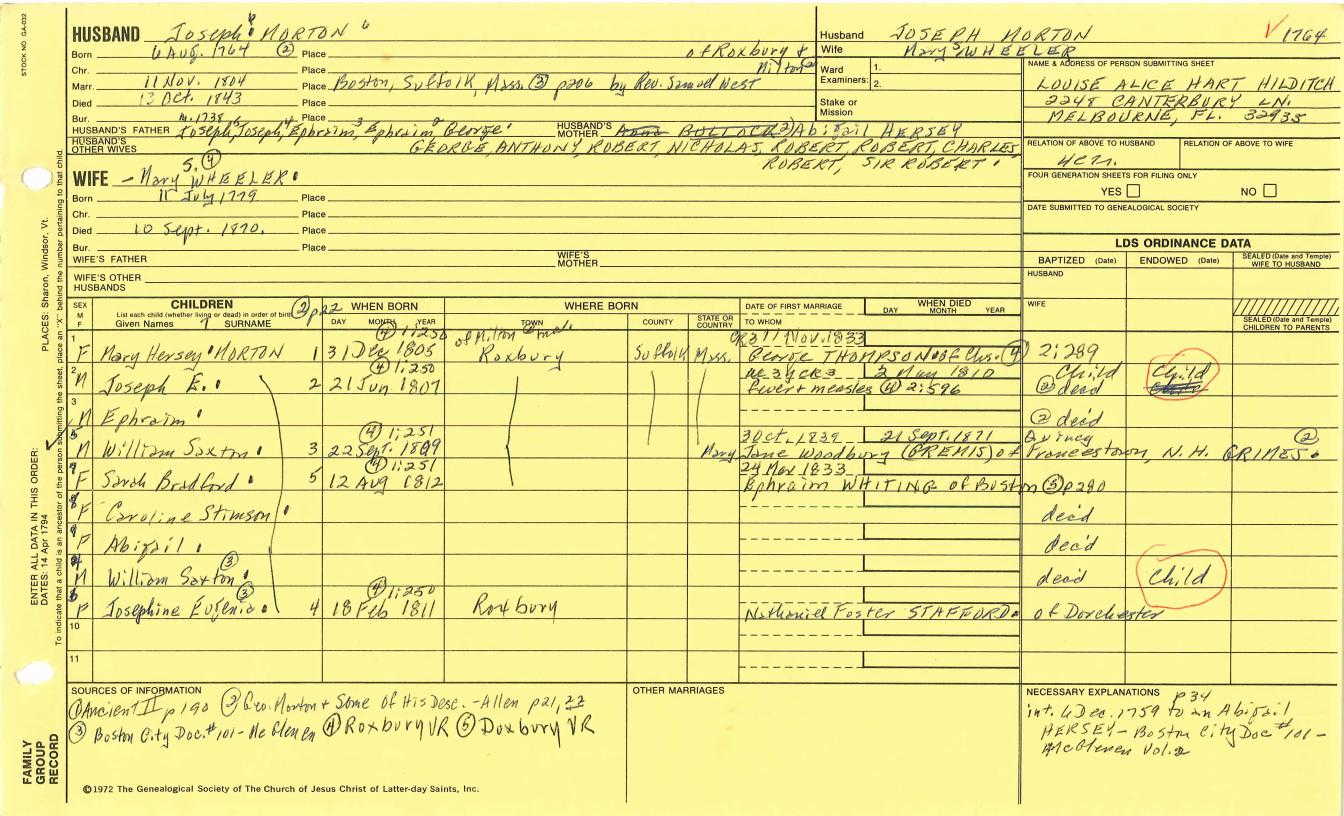 STOCK NO. GA-032
PLACES: Sharon, Windsor, Vt.
ENTER ALL DATA IN THIS ORDER:
DATES: 14 Apr 1794
To indicate that a child is an ancestor of the person submitting the sheet, place an "X" behind the number pertaining to that child.
FAMILY GROUP RECORD
HUSBAND Joseph 6 MORTON 6
Born 6 Aug. 1764 ② Place of Roxbury & Milton ②
Chr. Place
Marr. 11 Nov. 1804 Place Boston, Suffolk, Mass. ③ p206 by Rev. Samuel West
Died 13 Oct. 1843 Place
Bur. Place
HUSBAND'S FATHER Joseph 5, Joseph 4, Ephraim 3, Ephraim 2, George 1 m. 1738
HUSBAND'S MOTHER Anna BULLACK 2) Abigail HERSEY
HUSBAND'S OTHER WIVES GEORGE, ANTHONY, ROBERT, NICHOLAS, ROBERT, ROBERT, CHARLES,
ROBERT, SIR ROBERT
WIFE - Mary S. ④ WHEELER
Born 11 July 1779 Place
Chr. Place
Died 10 Sept. 1870. Place
Bur. Place
WIFE'S FATHER WIFE'S MOTHER
WIFE'S OTHER HUSBANDS
Husband JOSEPH MORTON ✓ 1764
Wife Mary S WHEELER
Ward 1.
Examiners: 2.
Stake or Mission
NAME & ADDRESS OF PERSON SUBMITTING SHEET
LOUISE ALICE HART HILDITCH
2248 CANTERBURY LN.
MELBOURNE, FL. 32935
RELATION OF ABOVE TO HUSBAND RELATION OF ABOVE TO WIFE
FOUR GENERATION SHEETS FOR FILING ONLY
YES NO
DATE SUBMITTED TO GENEALOGICAL SOCIETY
LDS ORDINANCE DATA
BAPTIZED (Date) ENDOWED (Date) SEALED (Date and Temple) WIFE TO HUSBAND
HUSBAND
WIFE
SEALED (Date and Temple) CHILDREN TO PARENTS
SEX M F
CHILDREN ② p22
List each child (whether living or dead) in order of birth
Given Names 7 SURNAME
WHEN BORN DAY MONTH YEAR
WHERE BORN TOWN COUNTY STATE OR COUNTRY
DATE OF FIRST MARRIAGE TO WHOM
WHEN DIED DAY MONTH YEAR
1 F Mary Hersey MORTON 1 31 Dec 1805 ④ 1:250 of Milton Roxbury Suffolk Mass. Nov. 1833 George THOMPSON of Chs. ④ 2:289
2 M Joseph E. 2 21 Jun 1807 ④ 1:250 ae 3 yrs 3 2 May 1810 fever + measles ④ 2:596 Child ② dead Child
3 M Ephraim ② dec'd
5 M William Saxton 3 22 Sept. 1809 ④ 1:251 30 Oct. 1839 21 Sept. 1871 Quincy Mary Jane Woodbury (GREMIS) of Francestown, N.H. GRIMES ②
7 F Sarah Bradford 5 12 Aug 1812 ④ 1:251 24 Mar 1833 Ephraim WHITING of Boston ⑤ p280
8 F Caroline Stimson dec'd
9 F Abigail dec'd
4 M William Saxton ③ dead Child
6 F Josephine Eugenia ③ 4 18 Feb 1811 ④ 1:250 Roxbury Nathaniel Foster STAFFORD of Dorchester
10
11
SOURCES OF INFORMATION
① Ancient II p190 ② Geo. Morton + Some of His Desc. - Allen p21, 22
③ Boston City Doc. #101 - McGlenen ④ Roxbury VR ⑤ Duxbury VR
OTHER MARRIAGES
NECESSARY EXPLANATIONS p34
int. 6 Dec. 1759 to an Abigail
HERSEY - Boston City Doc #101 -
McGlenen Vol. 2
©1972 The Genealogical Society of The Church of Jesus Christ of Latter-day Saints, Inc.